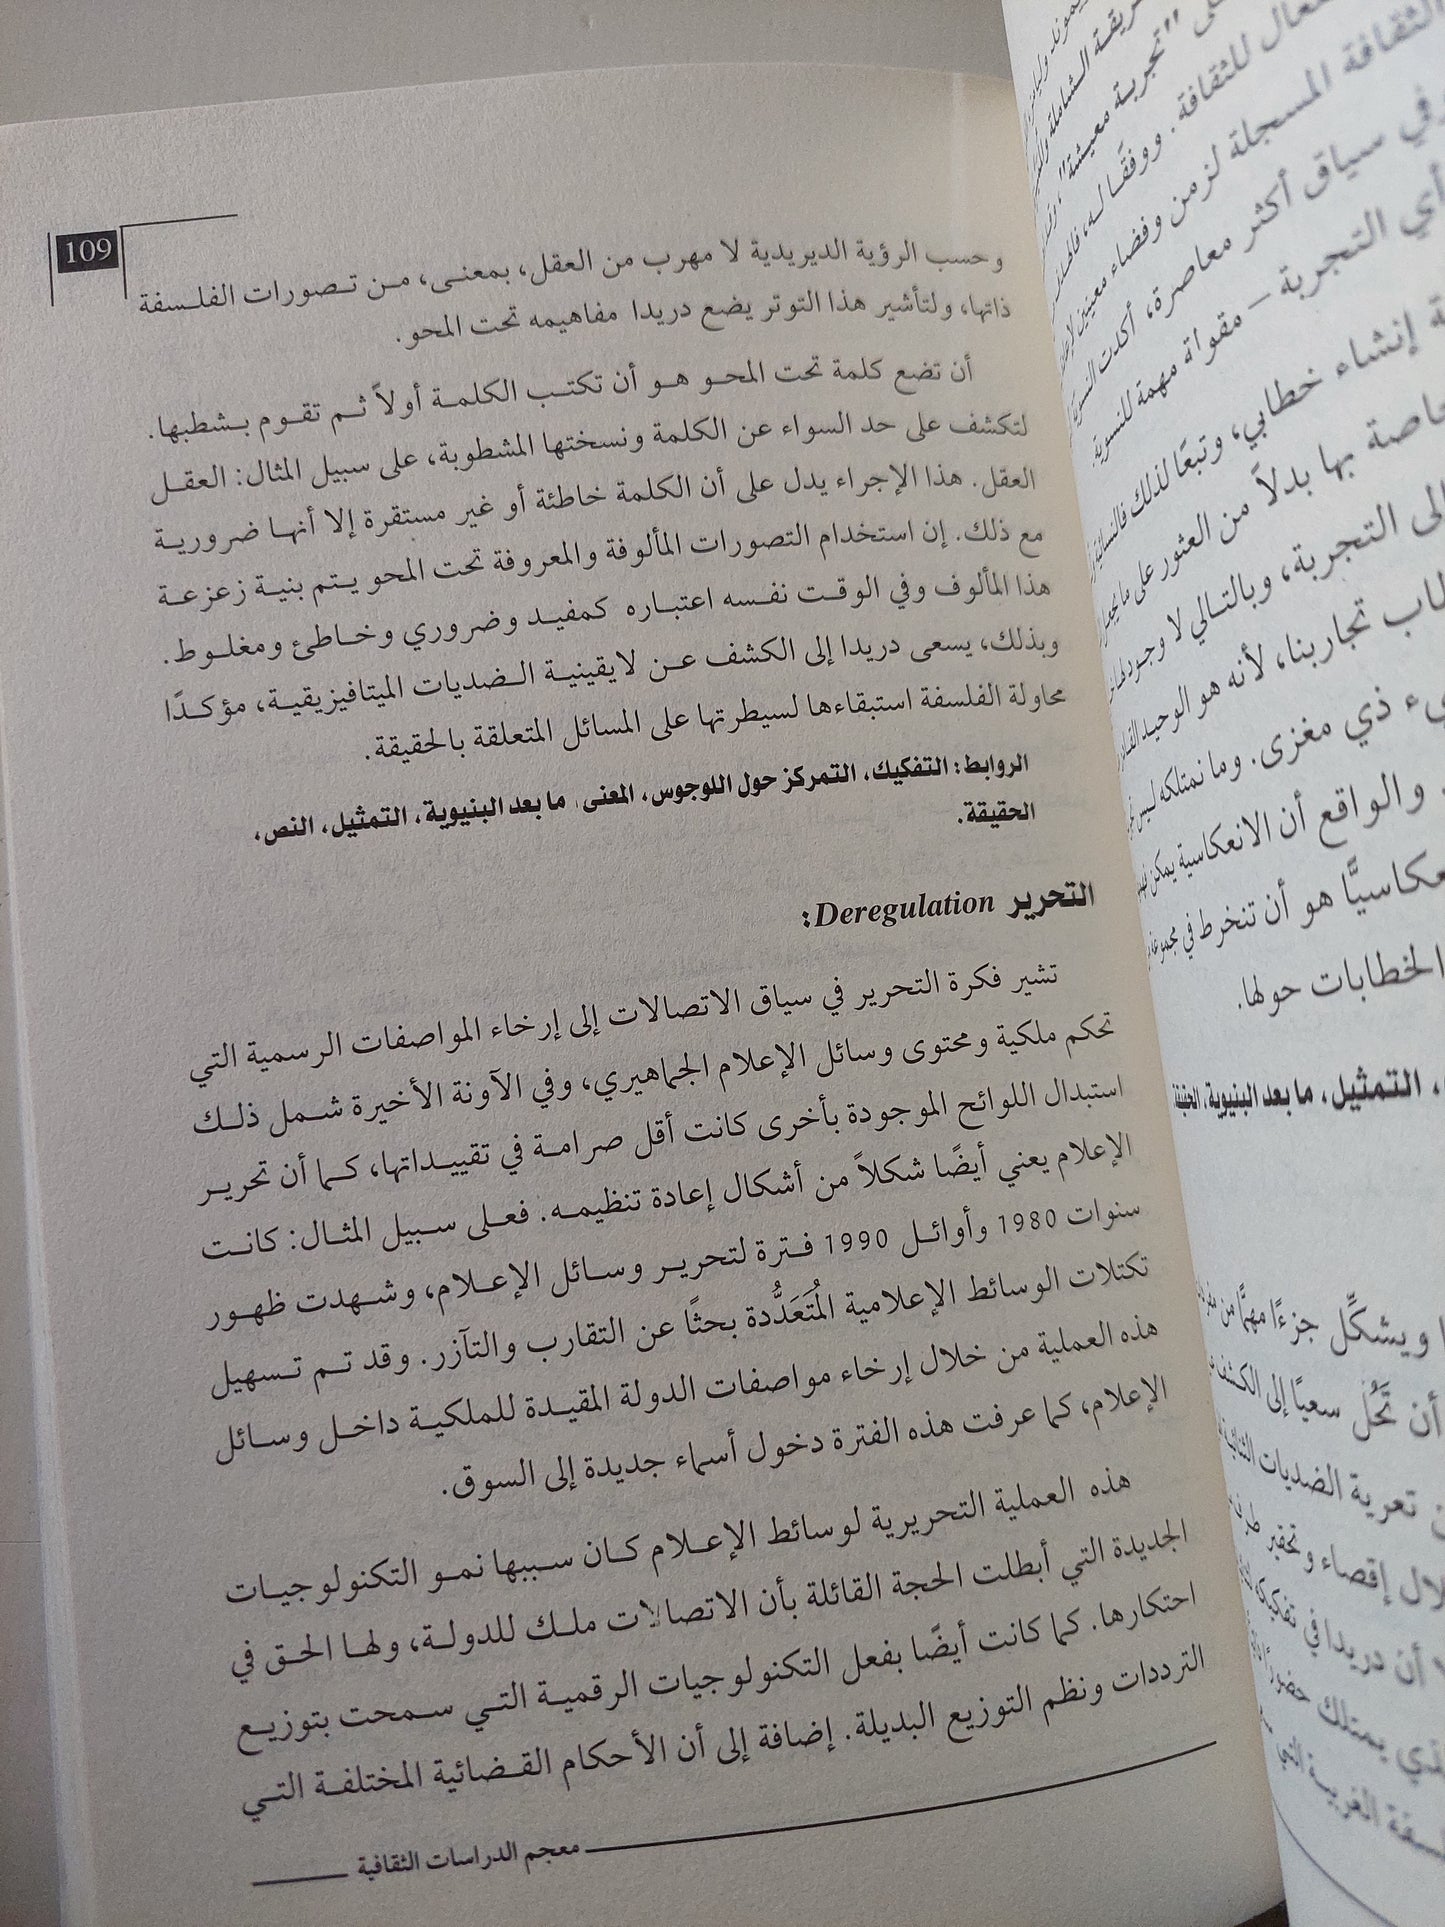 109
وحسب الرؤية الديريدية لا مهرب من العقل، بمعنى، من تصورات الفلسفة
ذاتها، ولتأشير هذا التوتر يضع دريدا مفاهيمه تحت المحو.
أن تضع كلمة تحت المحو هو أن تكتب الكلمة أولاً ثم تقوم بشطبها.
لتكشف على حد السواء عن الكلمة ونسختها المشطوبة، على سبيل المثال: العقل
العقل. هذا الإجراء يدل على أن الكلمة خاطئة أو غير مستقرة إلا أنها ضرورية
مع ذلك. إن استخدام التصورات المألوفة والمعروفة تحت المحو يتم بنية زعزعة
هذا المألوف وفي الوقت نفسه اعتباره كمفيد وضروري وخاطئ ومغلوط.
وبذلك، يسعى دريدا إلى الكشف عن لايقينية الضديات الميتافيزيقية، مؤكدًا
محاولة الفلسفة استبقاءها لسيطرتها على المسائل المتعلقة بالحقيقة.
الروابط: التفكيك، التمركز حول اللوجوس، المعنى، ما بعد البنيوية، التمثيل، النص،
الحقيقة.
التحرير Deregulation:
تشير فكرة التحرير في سياق الاتصالات إلى إرخاء المواصفات الرسمية التي
تحكم ملكية ومحتوى وسائل الإعلام الجماهيري، وفي الآونة الأخيرة شمل ذلك
استبدال اللوائح الموجودة بأخرى كانت أقل صرامة في تقييداتها، كما أن تحرير
الإعلام يعني أيضًا شكلاً من أشكال إعادة تنظيمه. فعلى سبيل المثال: كانت
سنوات 1980 وأوائل 1990 فترة لتحرير وسائل الإعلام، وشهدت ظهور
تكتلات الوسائط الإعلامية المُتَعَدُّدة بحثًا عن التقارب والتآزر. وقد تم تسهيل
هذه العملية من خلال إرخاء مواصفات الدولة المقيدة للملكية داخل وسائل
الإعلام، كما عرفت هذه الفترة دخول أسماء جديدة إلى السوق.
هذه العملية التحريرية لوسائط الإعلام كان سببها نمو التكنولوجيات
الجديدة التي أبطلت الحجة القائلة بأن الاتصالات ملك للدولة، ولها الحق في
احتكارها. كما كانت أيضًا بفعل التكنولوجيات الرقمية التي سمحت بتوزيع
الترددات ونظم التوزيع البديلة. إضافة إلى أن الأحكام القضائية المختلفة التي
معجم الدراسات الثقافية
"تجربة معيشة"
للثقافة. ووفقًا له،
الثقافة المسجلة لزمن وفضاء معينين
في سياق أكثر معاصرة، أكدت
أي التجربة – مقولة مهمة للنسوية.
إنشاء خطابي، وتبعًا لذلك
بها بدلاً من العثور على ما
التجربة، وبالتالي لا وجود
تجاربنا، لأنه هو الوحيد
ذي مغزى. وما نمتلكه ليس
والواقع أن الانعكاسية يمكن
هو أن تنخرط في
الخطابات حولها.
التمثيل، ما بعد البنيوية،
ويشكِّل جزءًا مهمًّا من
أن سعيًا إلى الكشف
تعرية الضديات
إقصاء
أن دريدا في
يمتلك
الغربية